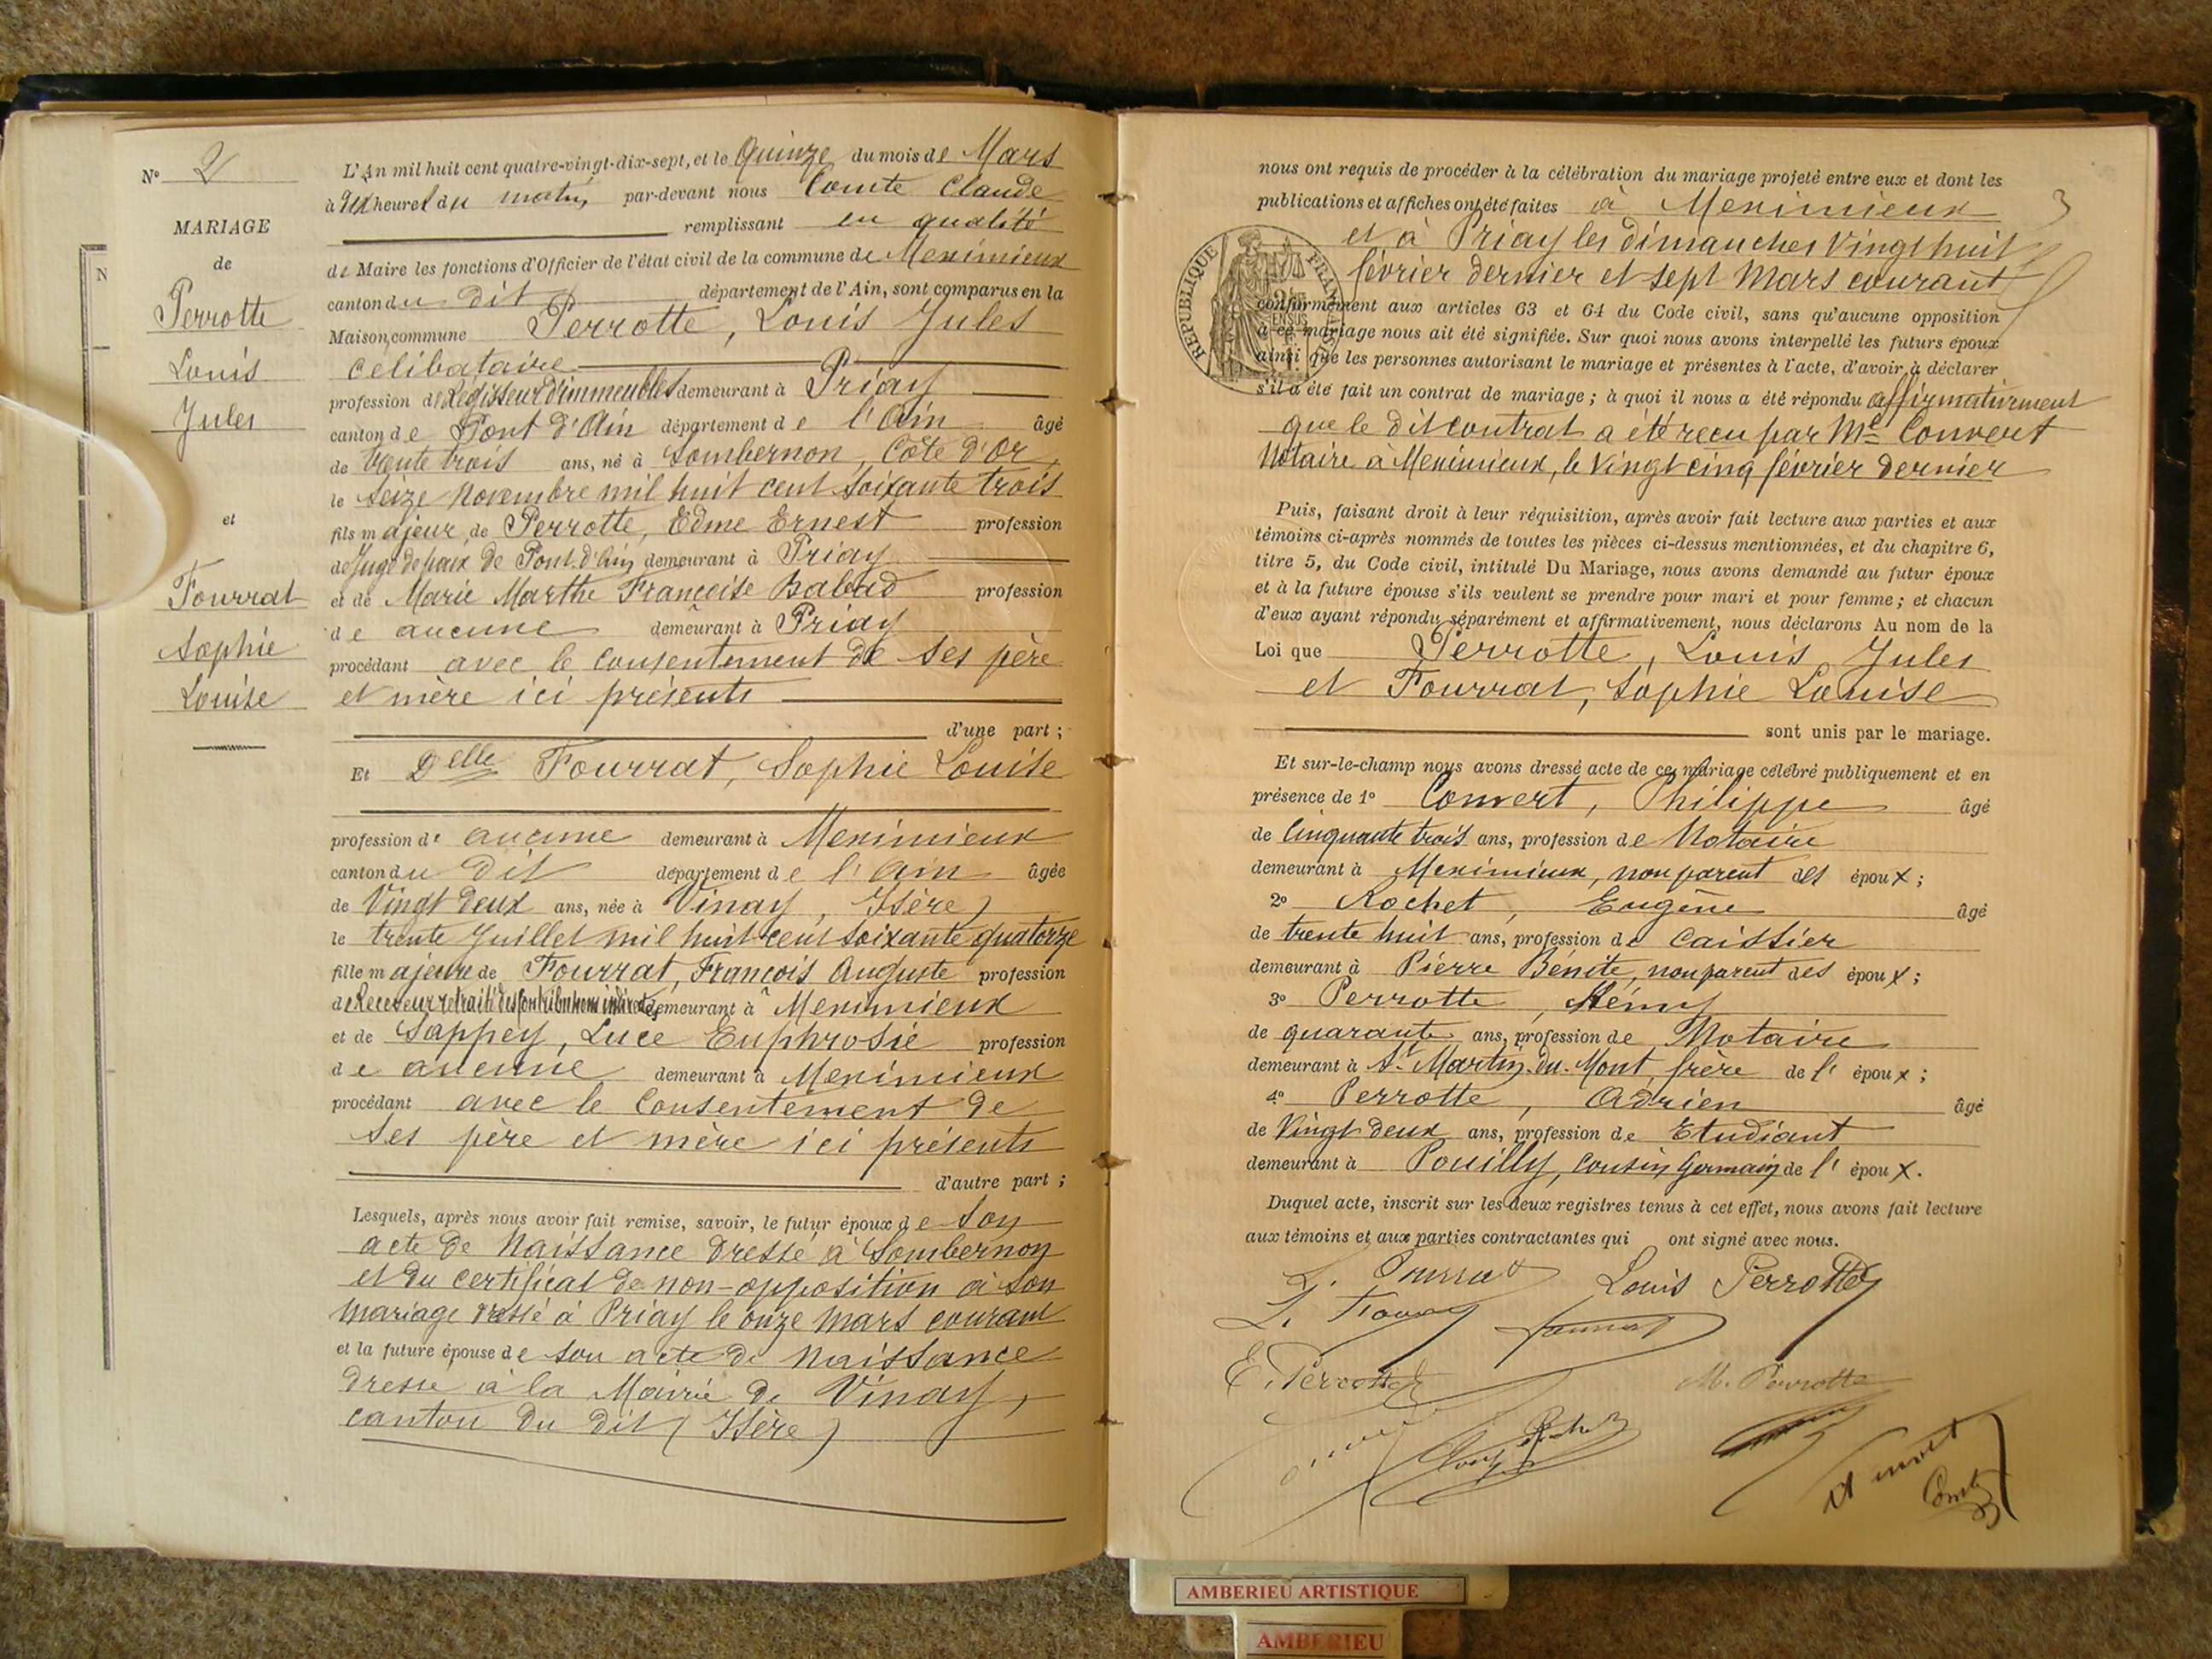 N° 2
MARIAGE
de
Perrotte
Louis
Jules
et
Fourrat
Sophie
Louise
N
L'An mil huit cent quatre-vingt-dix-sept, et le Quinze du mois de Mars
à dix heures du matin, par-devant nous Comte Claude
remplissant en qualité
de Maire les fonctions d'Officier de l'état civil de la commune de Meximieux
canton du dit département de l'Ain, sont comparus en la
Maison commune Perrotte, Louis Jules
célibataire
profession de Régisseur d'immeubles demeurant à Priay
canton de Pont d'Ain département de l'Ain âgé
de trente trois ans, né à Sombernon, Côte d'Or,
le seize novembre mil huit cent soixante trois
fils majeur de Perrotte, Edme Ernest profession
de Juge de paix de Pont-d'Ain demeurant à Priay
et de Marie Marthe Françoise profession
de aucune demeurant à Priay
procédant avec le consentement de ses père
et mère ici présents
d'une part ;
Et Delle Fourrat, Sophie Louise
profession de aucune demeurant à Meximieux
canton du dit département de l'Ain âgée
de Vingt deux ans, née à Vinay, Isère)
le trente Juillet mil huit cent soixante quatorze
fille majeure de Fourrat, François Auguste profession
de Receveur retraité des Contributions indirectes demeurant à Meximieux
et de Sappey, Luce Euphrosie profession
de aucune demeurant à Meximieux
procédant avec le Consentement de
ses père et mère ici présents
d'autre part ;
Lesquels, après nous avoir fait remise, savoir, le futur époux de son
acte de Naissance dressé à Sombernon
et du certificat de non-opposition à son
mariage dressé à Priay le onze Mars courant
et la future épouse de son acte de Naissance
dressé à la Mairie de Vinay,
canton du dit (Isère)
3
nous ont requis de procéder à la célébration du mariage projeté entre eux et dont les
publications et affiches ont été faites à Meximieux
et à Priay les dimanches Vingt huit
février dernier et sept Mars courant
REPUBLIQUE FRANÇAISE
conformément aux articles 63 et 64 du Code civil, sans qu'aucune opposition
à ce mariage nous ait été signifiée. Sur quoi nous avons interpellé les futurs époux
ainsi que les personnes autorisant le mariage et présentes à l'acte, d'avoir à déclarer
s'il a été fait un contrat de mariage ; à quoi il nous a été répondu affirmativement
que le dit contrat a été reçu par Me Convert
Notaire à Meximieux, le Vingt cinq février dernier
Puis, faisant droit à leur réquisition, après avoir fait lecture aux parties et aux
témoins ci-après nommés de toutes les pièces ci-dessus mentionnées, et du chapitre 6,
titre 5, du Code civil, intitulé Du Mariage, nous avons demandé au futur époux
et à la future épouse s'ils veulent se prendre pour mari et pour femme ; et chacun
d'eux ayant répondu séparément et affirmativement, nous déclarons Au nom de la
Loi que Perrotte, Louis Jules
et Fourrat, Sophie Louise
sont unis par le mariage.
Et sur-le-champ nous avons dressé acte de ce mariage célébré publiquement et en
présence de 1° Convert, Philippe âgé
de Cinquante trois ans, profession de Notaire
demeurant à Meximieux, non parent des époux ;
2° Rochet, Eugène âgé
de trente huit ans, profession de caissier
demeurant à Pierre Bénite, non parent des époux ;
3° Perrotte, Rémy
de quarante ans, profession de Notaire
demeurant à St Martin-du-Mont, frère de l'époux ;
4° Perrotte, Adrien âgé
de Vingt deux ans, profession de Etudiant
demeurant à Pouilly, cousin Germain de l'époux.
Duquel acte, inscrit sur les deux registres tenus à cet effet, nous avons fait lecture
aux témoins et aux parties contractantes qui ont signé avec nous.
Louis Perrotte
E. Perrotte
M. Perrotte
AMBERIEU ARTISTIQUE
AMBERIEU